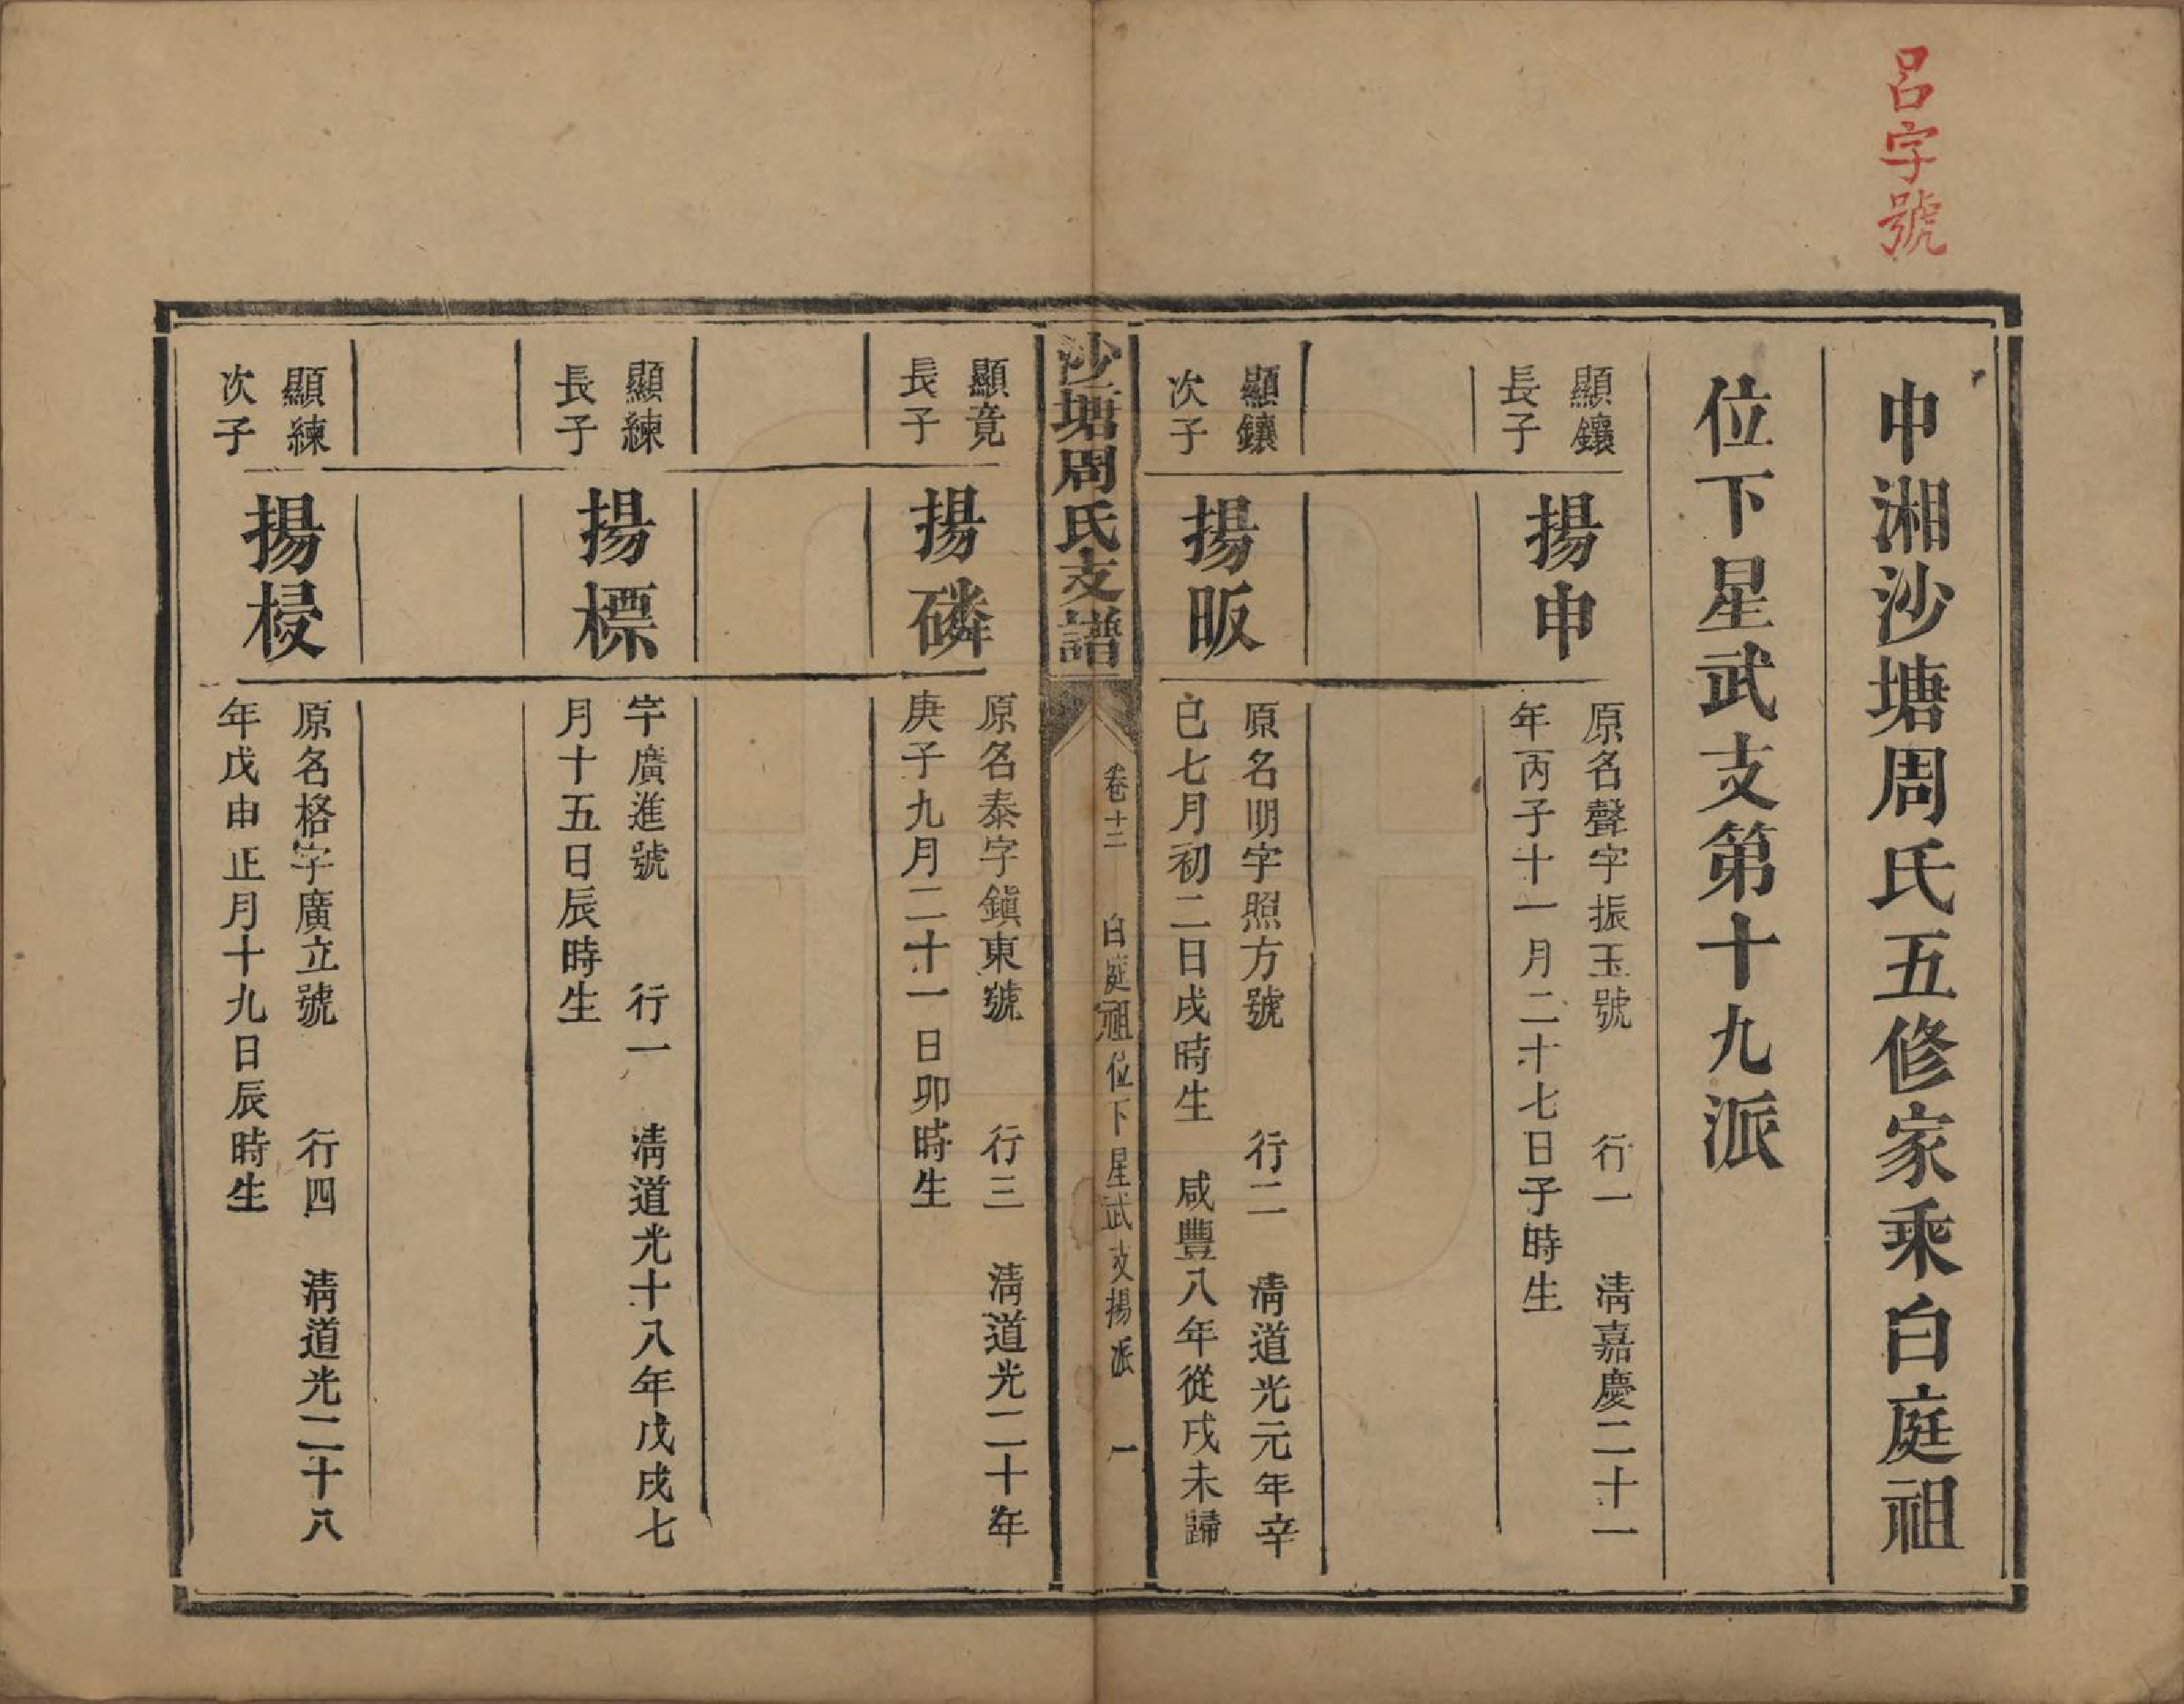 呂字號
中湘沙塘周氏五修家乘白庭祖
位下星武支第十九派
顯鑲
長子
揚申
原名聲字振玉號　行一　淸嘉慶二十一
年丙子十一月二十七日子時生
顯鑲
次子
揚昄
原名明字照方號　行二　淸道光元年辛
巳七月初二日戌時生　咸豐八年從戎未歸
沙塘周氏支譜
卷十二
白庭祖位下星武支揚派
一
顯竟
長子
揚磷
原名泰字鎭東號　行三　淸道光二十年
庚子九月二十一日卯時生
顯練
長子
揚標
字廣進號　行一　淸道光十八年戊戌七
月十五日辰時生
顯練
次子
揚梫
原名格字廣立號　行四　淸道光二十八
年戊申正月十九日辰時生